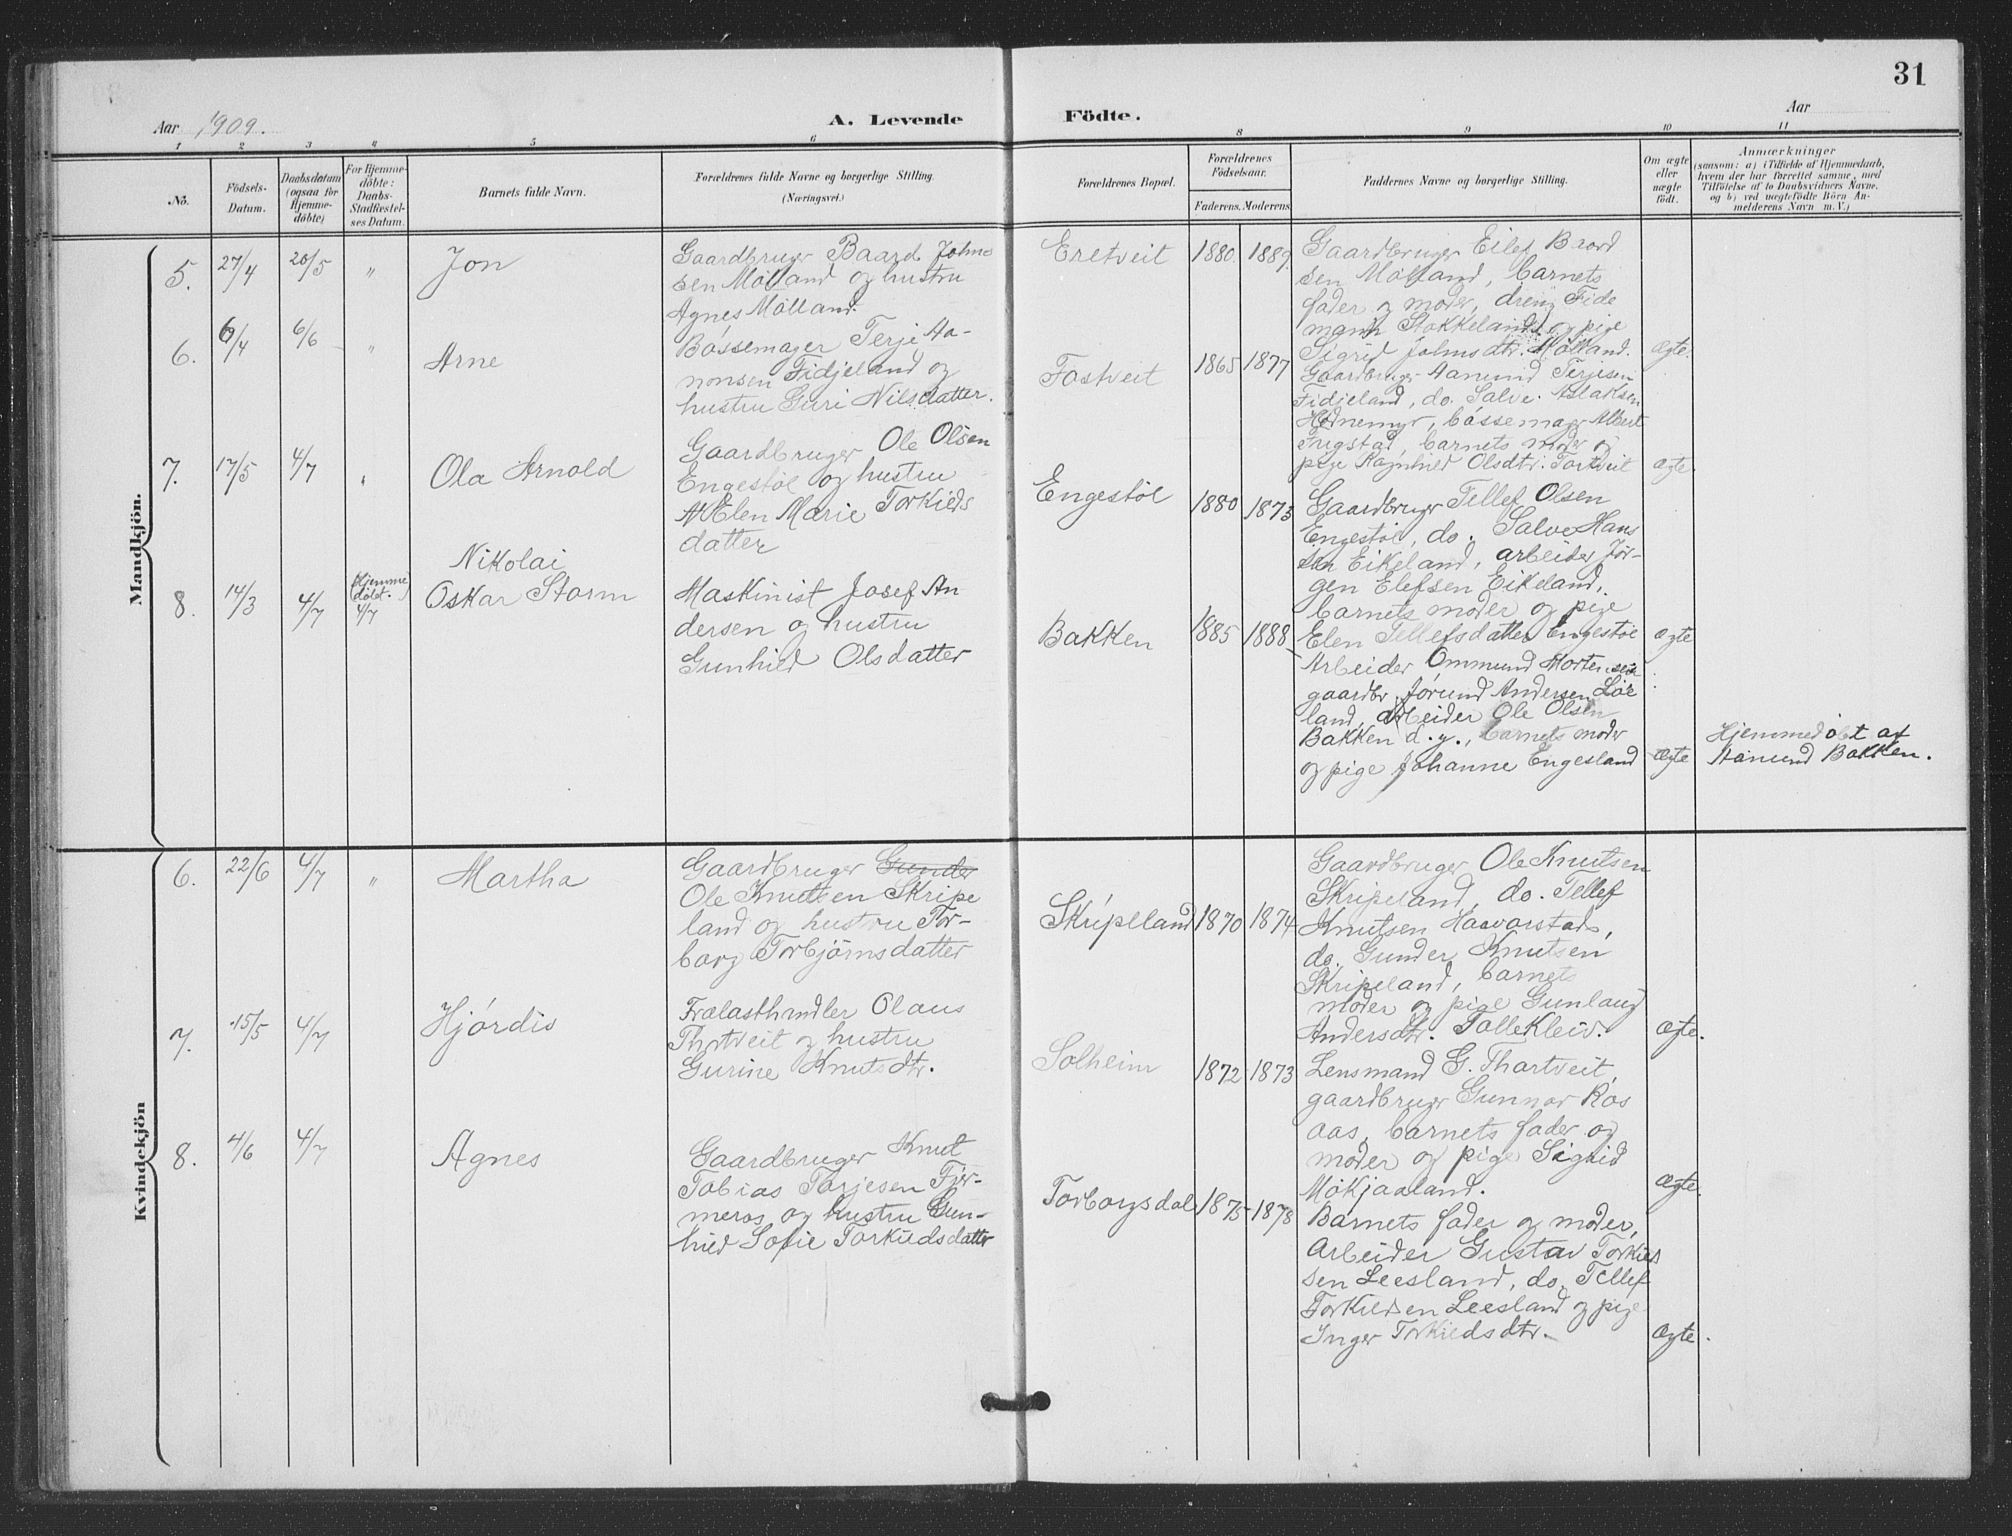 31
Aar 1909.
A. Levende Födte.
Aar
1 2 3 4 5 6 8 9 10 11
No.
Födsels-Datum.
Daabsdatum (ogsaa for Hjemme-döbte)
For Hjemme-döbte: Daabs-Stadfestel-ses Datum.
Barnets fulde Navn.
Forældrenes fulde Navne og borgerlige Stilling. (Næringsvei.)
Forældrenes Bopæl.
Forældrenes Födselsaar.
Faderens. Moderens.
Faddernes Navne og borgerlige Stilling.
Om ægte eller uægte födt.
Anmærkninger
(saasom: a) i Tilfælde af Hjemmedaab, hvem der har forrettet samme, med Tilföielse af to Daabsvidners Navne, og b) ved uægtefödte Börn An-melderens Navn m. V.)
Mandkjön.
5. 27/4 20/5 " Jon
Gaardbruger Baard Johns
sen Mölland og hustru
Agnes Mölland.
Eretveit 1880. 1889.
Gaardbruger Eilef Baard
sen Mölland, barnets
fader og moder, dreng Fide
mann Stokkeland og pige
Sigrid Johnsdtr. Mölland. ægte.
6. 6/4 6/6 " Arne
Bössemager Terje Aa-
nonsen Fidjeland og
hustru Guri Nilsdatter.
Fostveit 1865 1877
Gaardbruger Aanund Terjesen
Fidjeland, do. Salve Aslaksen
Hodnemyr, bössemager Albert
Trygstad, barnets moder og
pige Ragnhild Olsdtr. Tortveit ægte.
7. 17/5 4/7 " Ola Arnold
Gaardbruger Ole Olsen
Engestöl og hustru
Elen Marie Torkilds
datter
Engestöl 1880 1873
Gaardbruger Tellef Olsen
Engestöl, do. Salve Hans
sen Eikeland, arbeider Jör-
gen Elefsen Eikeland,
barnets moder og pige
Elen Tellefsdatter Engestöl ægte
8. 14/3 4/7 (Hjemme
döbt.)
4/7
Nikolai
Oskar Storm
Maskinist Josef An
dersen og hustru
Gunhild Olsdatter
Bakken 1885 1888
Arbeider Ommund Mortensen
gaardbr. Jörund Andersen Löe
land, arbeider Ole Olsen
Bakken d. y., barnets moder
og pige Johanne Engesland ægte
Hjemmedöbt af
Aanund Bakken.
Kvindekjön
6. 22/6 4/7 " Martha
Gaardbruger Gunder
Ole Knutsen Skripe
land og hustru Tor-
borg Torbjörnsdatter
Skripeland 1870 1874
Gaardbruger Ole Knutsen
Skripeland, do. Tellef
Knutsen Haavorstad,
do. Gunder Knutsen
Skripeland, barnets
moder og pige Gunlaug
Andersdtr. Tollekleiv. ægte.
7. 15/5 4/7 Hjördis
Frælasthndler Olaus
Thortveit og hustru
Gurine Knutsdtr.
Solheim 1872 1873
Lensmand G. Thortveit,
gaardbruger Gunnar Ros
aas, barnets fader og
moder og pige Sigrid
Mökjaaland. ægte.
8. 4/6 4/7 Agnes
Gaardbruger Knut
Tobias Torjesen Fjer-
meros og hustru Gun-
hild Sofie Torkildsdatter
Torborgsdal 1875 1878
Barnets fader og moder,
Arbeider Gustav Torkild
sen Leesland, do. Tellef
Torkildsen Leesland og pige
Inger Torkildsdtr. ægte.